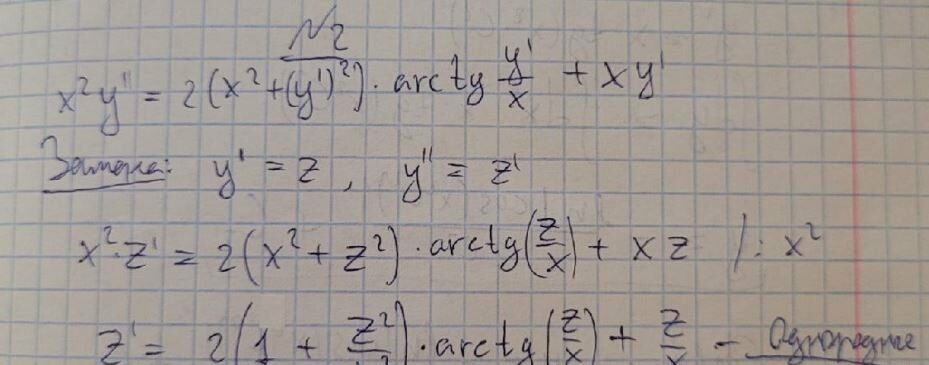 №2
x²y'' = 2(x²+(y')²)·arctg y'/x + xy'
Замена: y' = z, y'' = z'
x²·z' = 2(x² + z²)·arctg(z/x) + xz /: x²
z' = 2(1 + z²/x²)·arctg(z/x) + z/x - Однородное